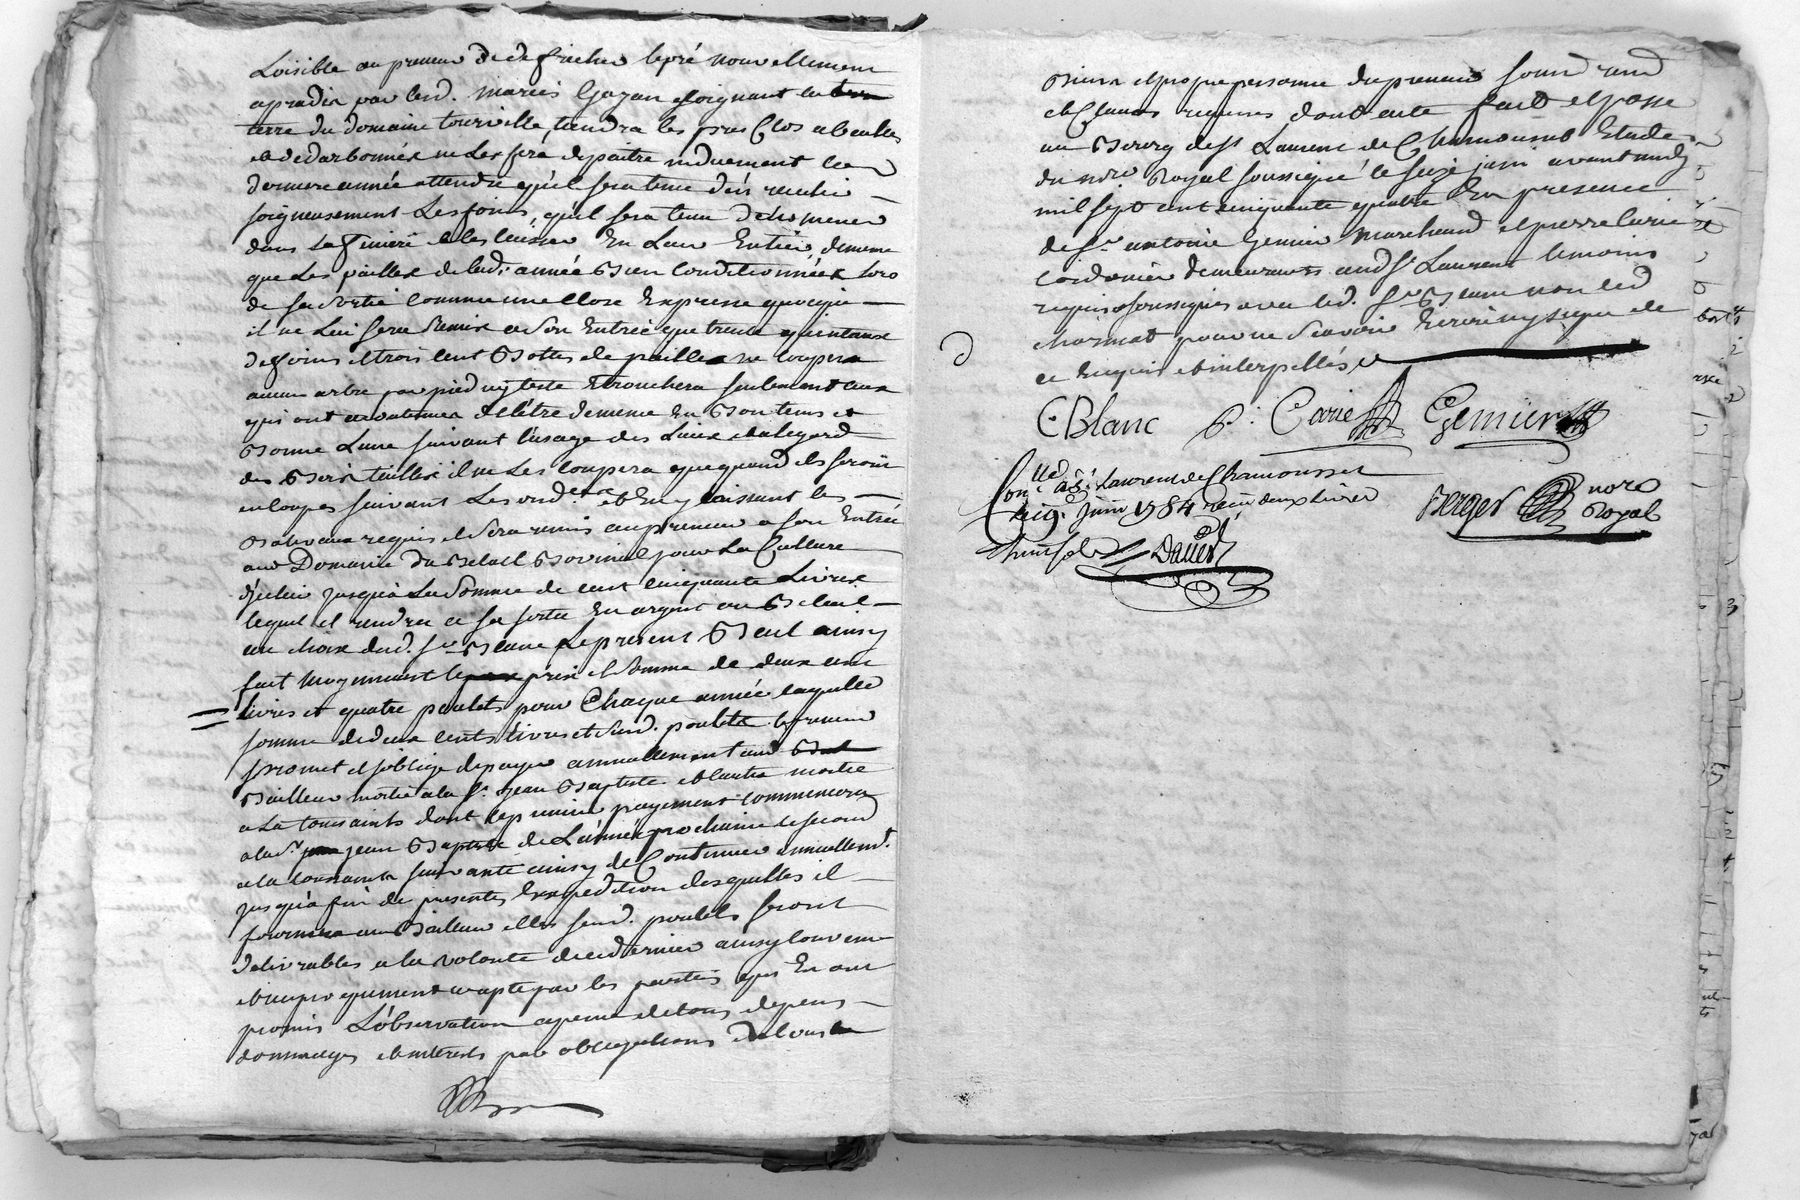 Loisible au preneur de defricher le pré nouvellement
apradis par lesd. mariés Gayan joignant la
terre du domaine tourville tiendra les prés Clos
et ne les fera depaitre nduement la
derniere année attendu qu'il sera tenu d'en recuillir
soigneusement Les foins, qu'il sera tenu de
dans La feniere et les laisser En Leur Entier, de meme
que Les pailles de lad. année Bien Conditionnées Lors
de sa Sortie Comme une Close Expresse quoyque
il ne Lui sera Remis a Son Entrée que trente quintaux
de foins et trois cent Bottes de paille ne Coupera
aucun arbre par pied ny teste Ebranchera seulement ceux
qui ont accoutumés de l'être de meme En Bon tems et
Bonne Lune suivant l'usage des Lieux et a l'egard
des Bois taillis il ne Les Coupera que quand ils seront
en Coupes suivant Les ord.ces et En y laissant les
Balivaux requis et Sera remis au preneur a son Entrée
aud Domaine du Betail Bovinal pour La Culture
d'jceluy jusqu'à La Somme de cent cinquante Livres
lequel il rendra a sa sortie En argent ou Betail
au choix dud. Sr Blanc Le present Bail ainsy
fait moyennant le prix et Somme de deux cent
livres et quatre poulets pour Chaque année laquelle
somme de deux cents livres et Susd. poulets le preneur
promet et s'oblige de payer annuellement aud
Bailleur moitié a la St. Jean Baptiste et l'autre moitié
a La toussaints dont le premier payement Commencera
a la St. Jean Baptiste de L'année prochaine le second
a la toussaints suivante ainsy de Continuer annuellemt.
jusqu'à fin de presentes Expedition desquelles il
fournira au Bailleur et les susd. poulets seront
delivrables a la volonté de ce dernier ainsy Convenu
et reciproquement accepté par les parties qui En ont
promis L'observation a peine de tous depens
dommages et interets par obligations de tous
Biens et propre personne du preneur soum rend
et Clauses requises dont acte fait et passé
au Bourg de St Laurent de Chamousset Etude
du nore Royal soussigné le seize juin avant midy
mil sept cent cinquante quatre En presence
de Sr. antoine Gemier Marchand et pierre Carie
Cordonier demeurants aud St Laurent temoins
requis soussignés avec led. Sr Blanc non led
charmat pour ne Scavoir Ecrire ny signer de
ce Enquis et interpellés
CBlanc P. Carie Gemier
Conllé a St. Laurent de Chamousset
Le 19e. juin 1754 recu deux Livres
huit sols Daver
Berger nore
Royal